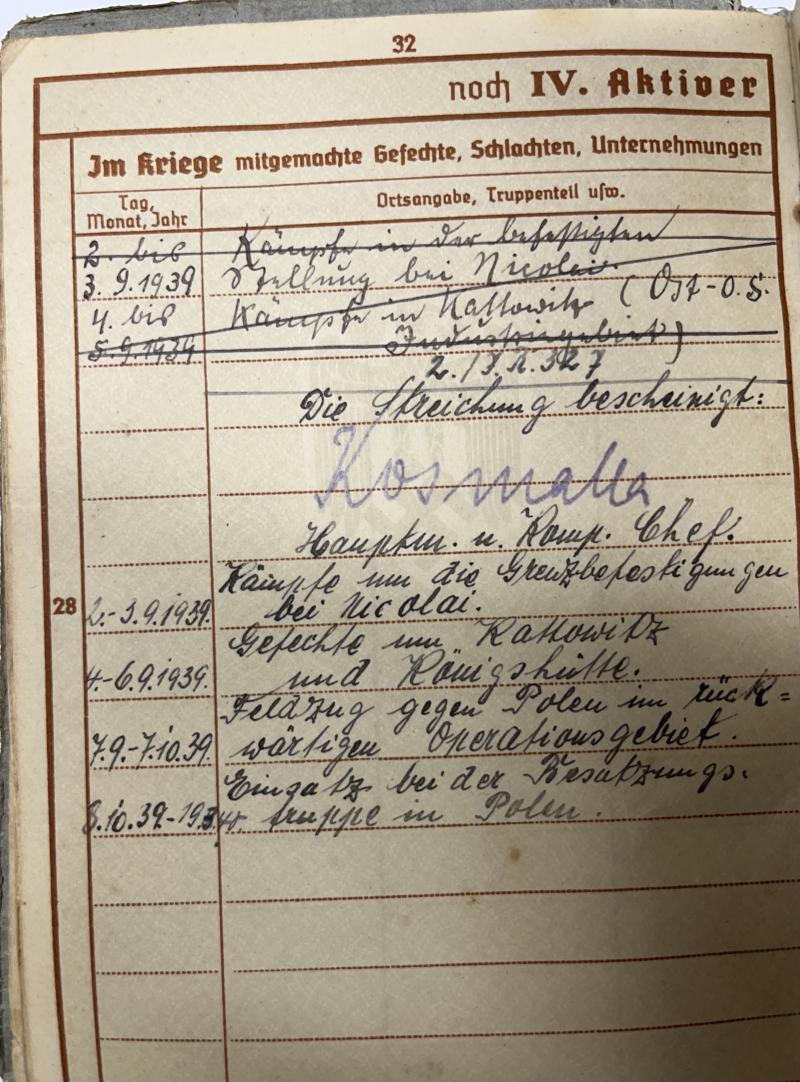 32
noch IV. Aktiver
Im Kriege mitgemachte Gefechte, Schlachten, Unternehmungen
Tag, Monat, Jahr
Ortsangabe, Truppenteil usw.
2. bis Kämpfe in der befestigten
3.9.1939 Stellung bei Nicolai.
4. bis Kämpfe in Kattowitz (Ost-O.S.
5.9.1939 Industriegebiet)
2./I.R. 327
Die Streichung bescheinigt:
Kosmalla
Hauptm. u. Komp. Chef.
Kämpfe um die Grenzbefestigungen
28 2.-3.9.1939. bei Nicolai.
Gefechte um Kattowitz
4.-6.9.1939. und Königshütte.
Feldzug gegen Polen im rück=
7.9.-7.10.39. wärtigen Operationsgebiet.
Einsatz bei der Besatzungs-
8.10.39.-19.3.40. truppe in Polen.